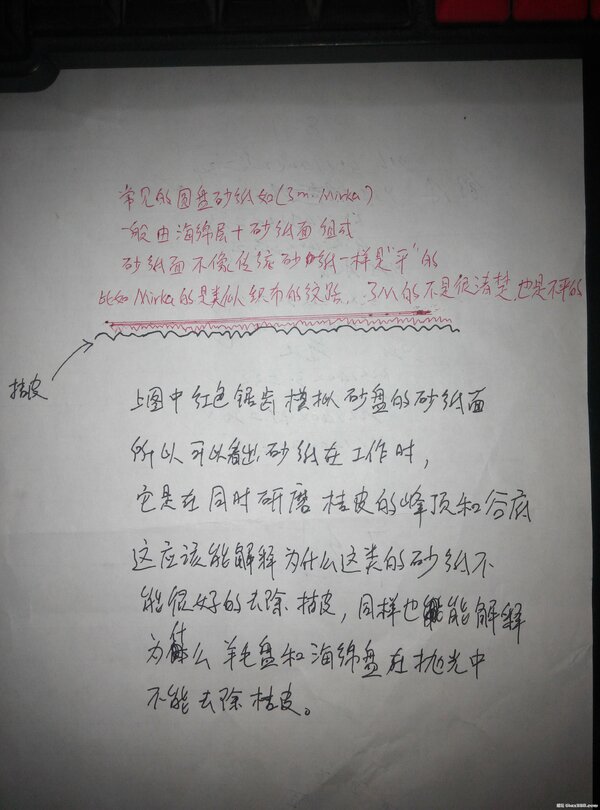 常见的圆盘砂纸如(3m.Mirka)
一般由海绵层+砂纸面组式
砂纸面不像传统砂纸一样是"平"的
比如Mirka的是类似织布的纹路,3M的不是很清楚,也是不平的
桔皮
上图中红色锯齿模拟砂盘的砂纸面
所以可以看出,砂纸在工作时,
它是在同时研磨桔皮的峰顶和谷底
这应该能解释为什么这类的砂纸不
能很好的去除桔皮,同样也能解释
为什么羊毛盘和海绵盘在抛光中
不能去除桔皮。